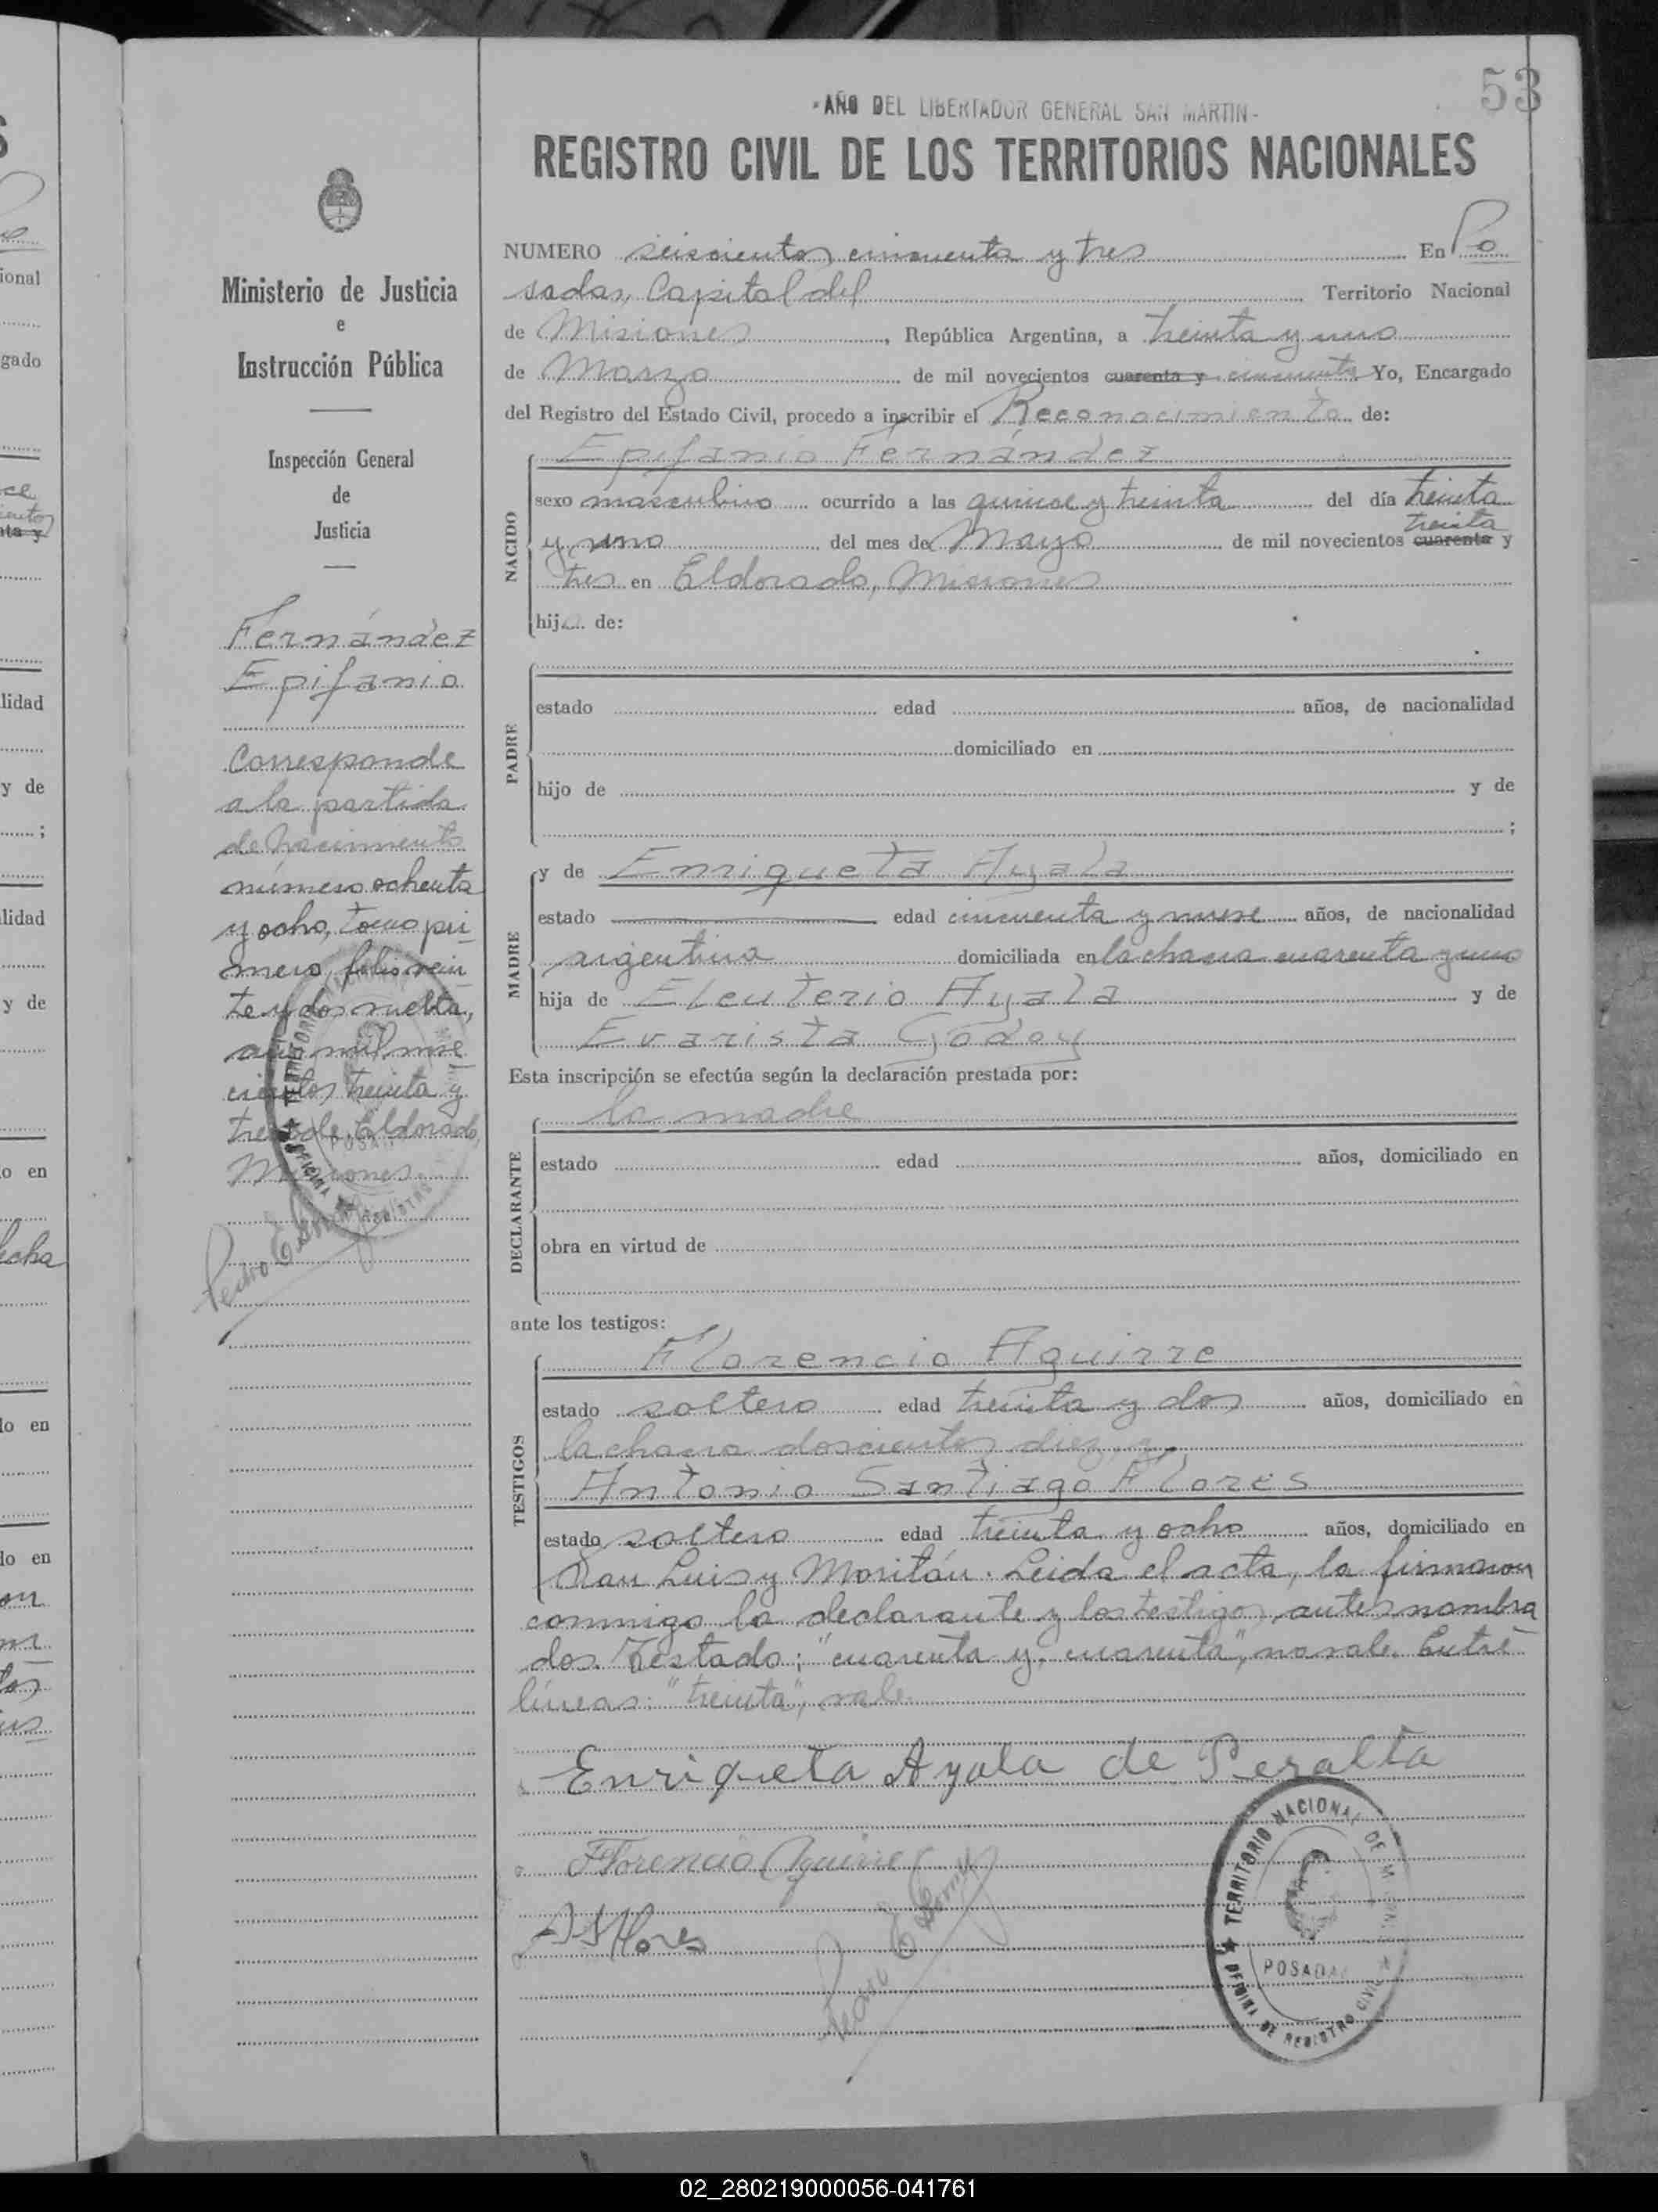 53
-AÑO DEL LIBERTADOR GENERAL SAN MARTIN-
REGISTRO CIVIL DE LOS TERRITORIOS NACIONALES
Ministerio de Justicia
e
Instrucción Pública
Inspección General
de
Justicia
Fernández
Epifanio
Corresponde
a la partida
de nacimiento
número ochenta
y ocho, tomo pri
mero, folio vein
te y dos vuelta,
año mil nove
cientos treinta y
tres de Eldorado,
Misiones
NUMERO seiscientos cincuenta y tres En Po
sadas, Capital del Territorio Nacional
de Misiones, República Argentina, a treinta y uno
de Marzo de mil novecientos cuarenta y cincuenta Yo, Encargado
del Registro del Estado Civil, procedo a inscribir el Reconocimiento de:
Epifanio Fernández
NACIDO
sexo masculino ocurrido a las quince y treinta del día treinta
treinta
y uno del mes de Mayo de mil novecientos cuarenta y
tres en Eldorado, Misiones
hij... de:
PADRE
estado edad años, de nacionalidad
domiciliado en
hijo de y de
;
MADRE
y de Enriqueta Ayala
estado edad cincuenta y nueve años, de nacionalidad
argentina domiciliada en la chacra cuarenta y uno
hija de Eleuterio Ayala y de
Evarista Godoy
Esta inscripción se efectúa según la declaración prestada por:
la madre
DECLARANTE
estado edad años, domiciliado en
obra en virtud de
ante los testigos:
TESTIGOS
Florencio Aguirre
estado soltero edad treinta y dos años, domiciliado en
la chacra doscientos diez, y
Antonio Santiago Flores
estado soltero edad treinta y ocho años, domiciliado en
San Luis y Moritán. Leida el acta, la firmaron
conmigo la declarante y los testigos antes nombra
dos. Testado: "cuarenta y, cuarenta", no vale. Entre
líneas: "treinta", vale.
Enriqueta Ayala de Peralta
Florencio Aguirre
A S Flores
TERRITORIO NACIONAL DE MISIONES
POSADAS
OFICINA DE REGISTRO CIVIL
02_280219000056-041761